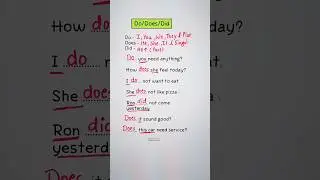 Do/Does/Did
Do - I, You, We, They & Plu
Does - He, She, It & Singul
Did - (Past)
Do you need anything?
How does she feel today?
I do not want to eat.
She does not like pizza.
Ron did not come
yesterday.
Does it sound good?
Does this car need service?
How
I do
She do
Ron did
yester